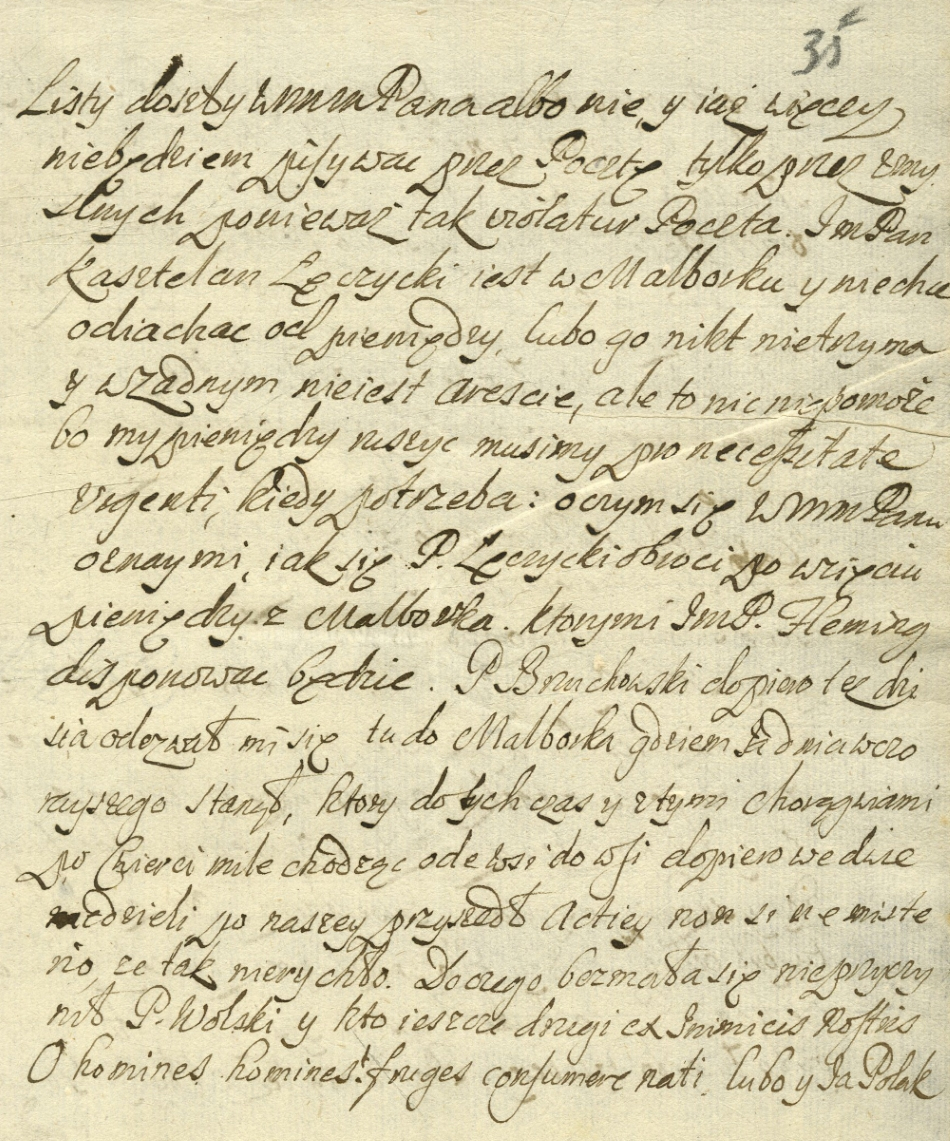 35
Listy doszły WMM Pana albo nie, y iuz więcey
niebędziem pisywac przez Pocztę tylko przez zmy
slnych poniewaz tak violatur Poczta. ImPan
Kasztelan Lęczycki iest w Malborku y niechce
odiachac od pieniędzy, lubo go nikt nietrzyma
y wzadnym nieiest arescie, ale to nic niepomoze
bo my pieniędzy ruszyc musimy pro necessitate
urgenti, kiedy potrzeba: oczym się WMM Panu
oznaymi, iak się P. Lęczycki obroci po wzięciu
pieniędzy z Malborka. ktorymi ImP. Fleming
disponowac będzie. P Bruchowski dopiero tez dzi
sia odezwał mi się tu do Malborka gdziem dnia wczo
rayszego stanął, ktory do tych czas y z tymi chorągwiami
po cwierci mile chodząc ode wsi do wsi dopiero we dwie
niedzieli po naszey przyszedł Actiey non sine miste
rio, ze tak nierychło. Do czego bezmała się nieprzyczy
nił P. Wolski y kto ieszcze drugi ex Inimicis nostris
O homines homines! fruges consumere nati. lubo y Ja Polak